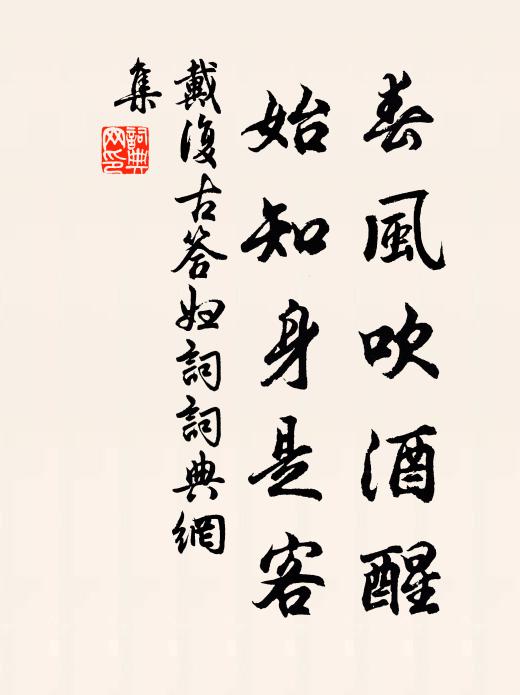 春風吹酒醒
始知身是客
戴復古答妲詞詞典網
集
詞典網印